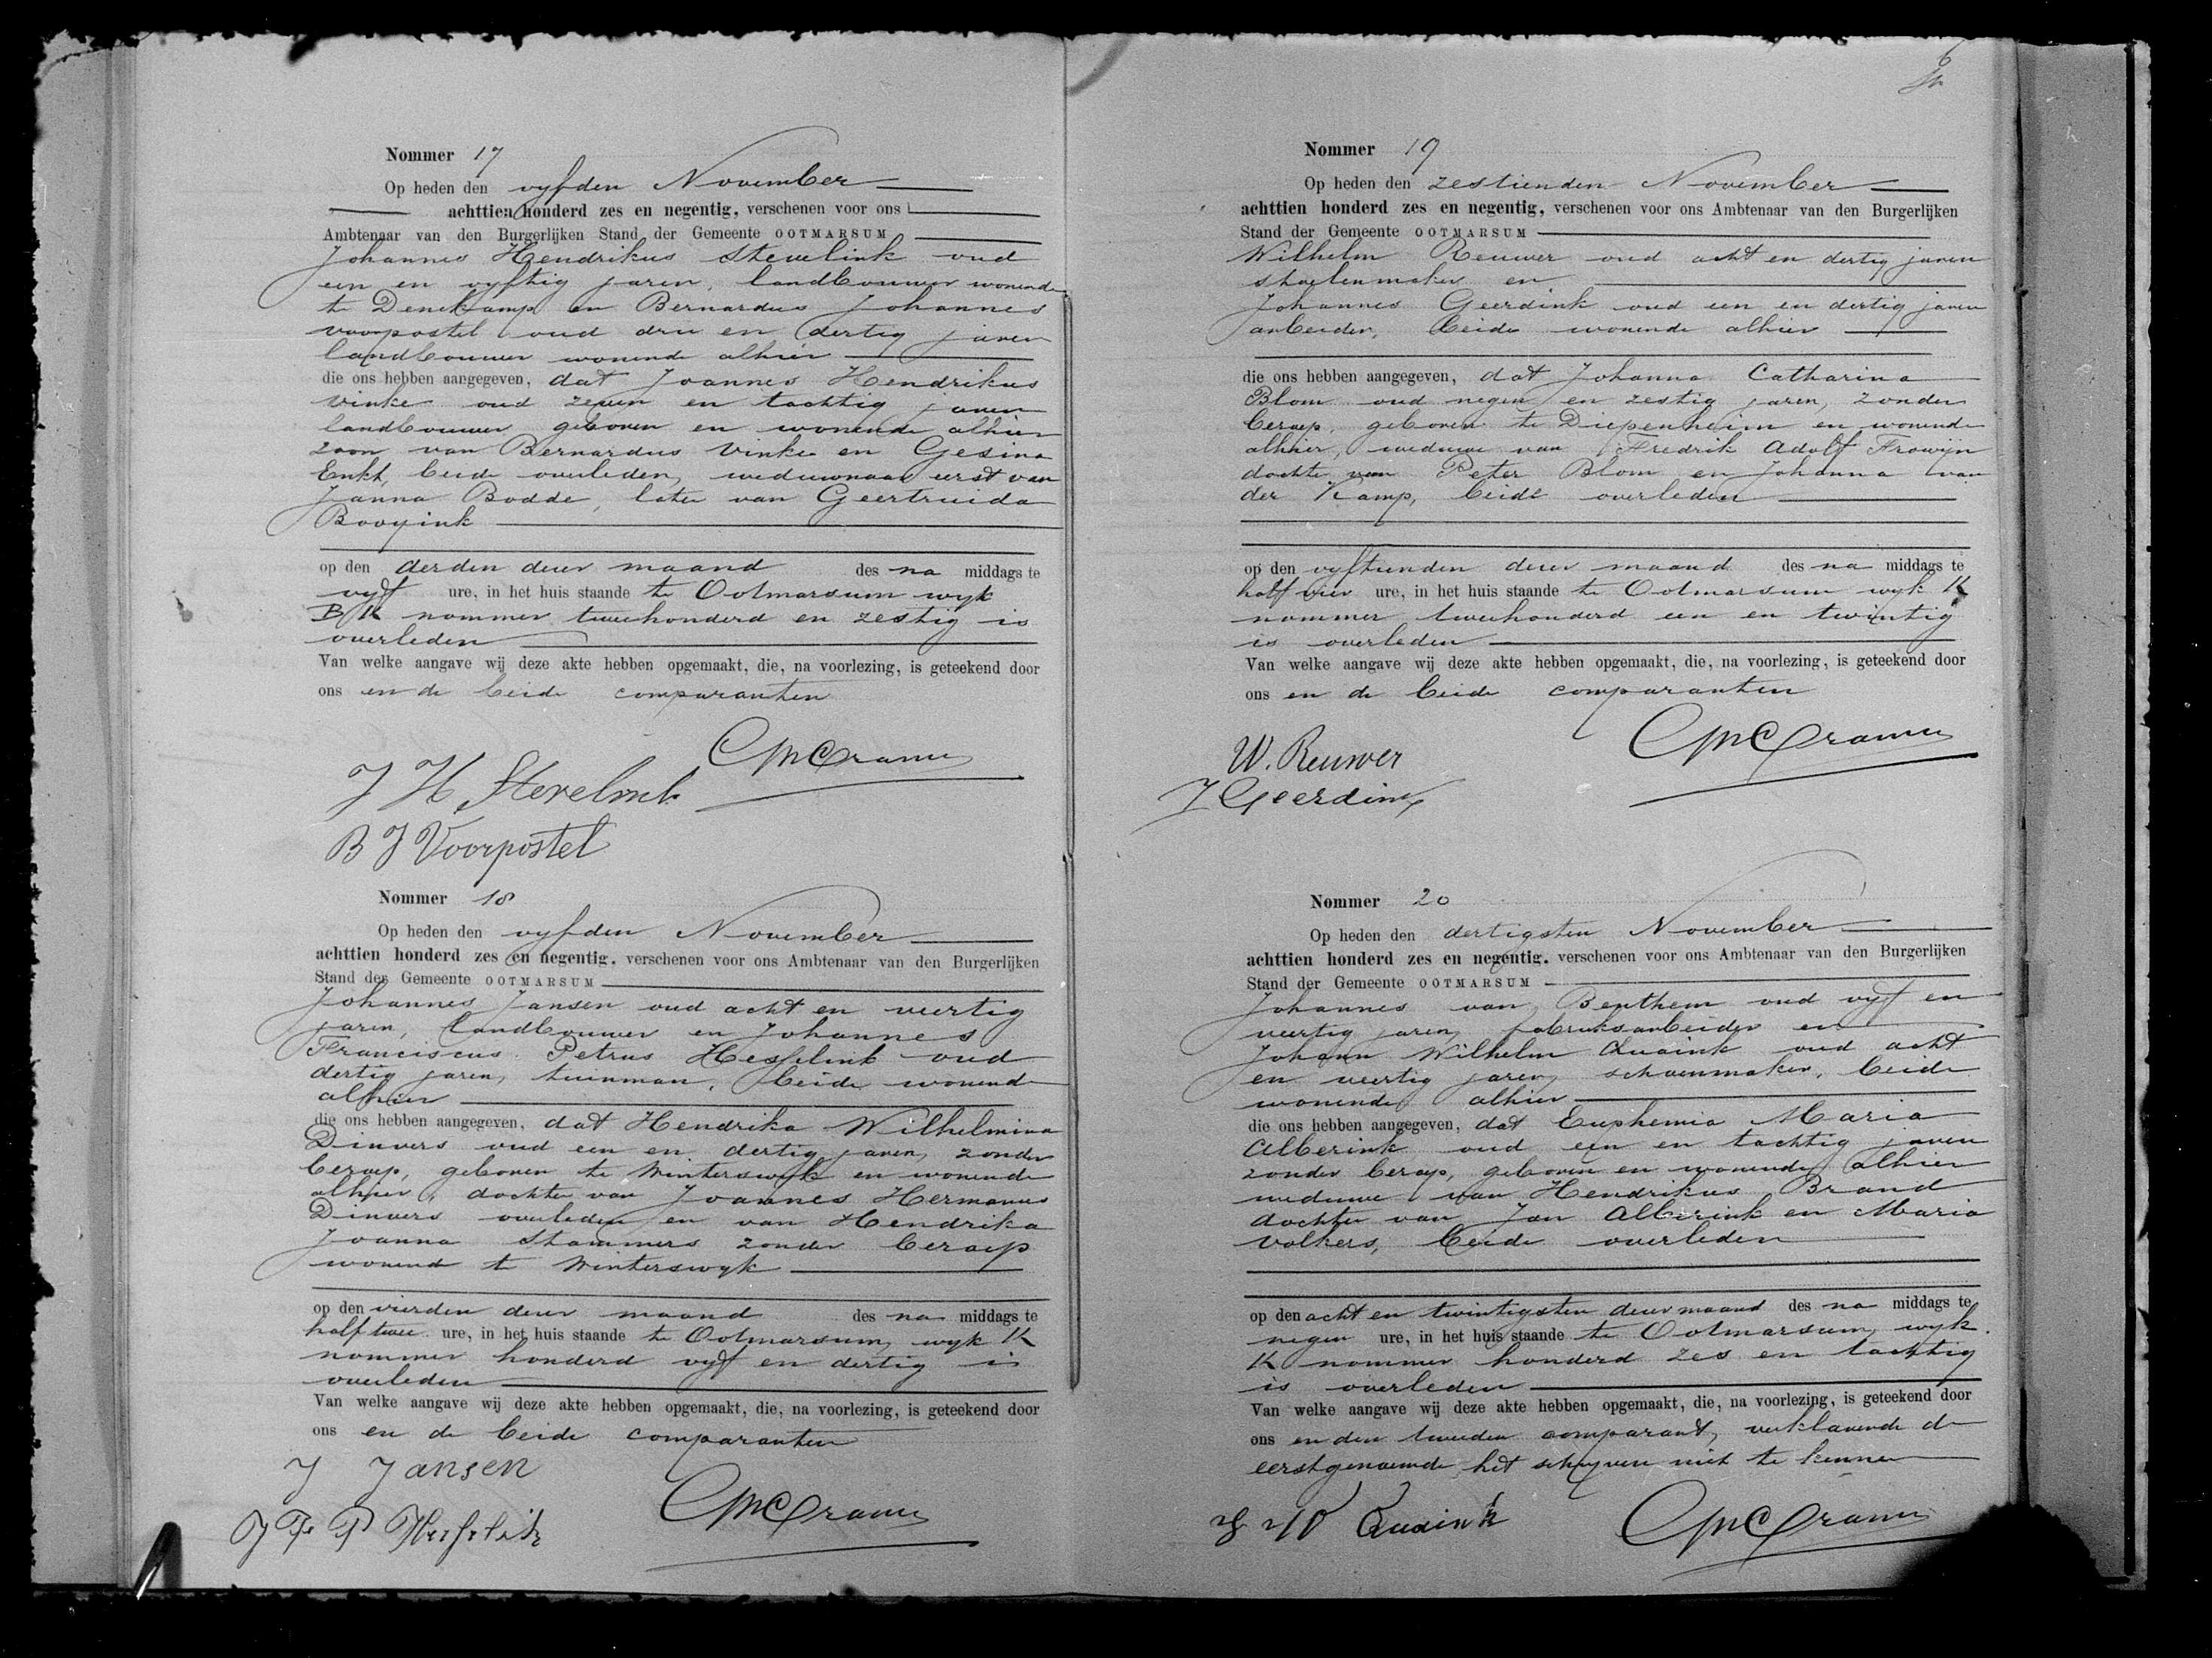 Nommer 17
Op heden den vyfden November
achttien honderd zes en negentig, verschenen voor ons
Ambtenaar van den Burgerlijken Stand der Gemeente OOTMARSUM
Johannes Hendrikus Stevelink oud
een en vyftig jaren, landbouwer wonende
te Denekamp en Bernardus Johannes
voorpostel oud drie en dertig jaren
landbouwer wonende alhier
die ons hebben aangegeven, dat Joannes Hendrikus
Vinke oud zeven en tachtig jaren
landbouwer geboren en wonende alhier
zoon van Bernardus Vinke en Gesina
Enkt, beide overleden, weduwnaar eerst van
Janna Bodde, later van Geertruida
Booyink
op den derden dezer maand des na middags te
vyf ure, in het huis staande te Ootmarsum wyk
B K nommer tweehonderd en zestig is
overleden
Van welke aangave wij deze akte hebben opgemaakt, die, na voorlezing, is geteekend door
ons en de beide comparanten
J H Stevelink
B J Voorpostel
Nommer 18
Op heden den vyfden November
achttien honderd zes en negentig, verschenen voor ons Ambtenaar van den Burgerlijken
Stand der Gemeente OOTMARSUM
Johannes Jansen oud acht en veertig
jaren, landbouwer en Johannes
Franciscus Petrus Hesselink oud
dertig jaren, tuinman, beide wonende
alhier
die ons hebben aangegeven, dat Hendrika Wilhelmina
Dinvers oud een en dertig jaren, zonder
beroep, geboren te Winterswyk en wonende
alhier, dochter van Joannes Hermanus
Dinvers overleden en van Hendrika
Joanna Stammers zonder beroep
wonend te Winterswyk
op den vierden dezer maand des na middags te
half twee ure, in het huis staande te Ootmarsum, wyk K
nommer honderd vyf en dertig is
overleden
Van welke aangave wij deze akte hebben opgemaakt, die, na voorlezing, is geteekend door
ons en de beide comparanten
J Jansen
J F P
Nommer 19
Op heden den zestienden November
achttien honderd zes en negentig, verschenen voor ons Ambtenaar van den Burgerlijken
Stand der Gemeente OOTMARSUM
Wilhelm Reuwer oud acht en dertig jaren
stoelenmaker en
Johannes Geerdink oud een en dertig jaren
arbeider, beide wonende alhier
die ons hebben aangegeven, dat Johanna Catharina
Blom oud negen en zestig jaren, zonder
beroep, geboren te Diepenheim en wonende
alhier, weduwe van Fredrik Adolf Frowijn
dochter van Peter Blom en Johanna van
der Kamp, beide overleden
op den vyftienden dezer maand des na middags te
half vier ure, in het huis staande te Ootmarsum wyk K
nommer tweehonderd een en twintig
is overleden
Van welke aangave wij deze akte hebben opgemaakt, die, na voorlezing, is geteekend door
ons en de beide comparanten
W. Reuwer
J Geerdink
Nommer 20
Op heden den dertigsten November
achttien honderd zes en negentig, verschenen voor ons Ambtenaar van den Burgerlijken
Stand der Gemeente OOTMARSUM
Johannes van Benthem oud vyf en
veertig jaren, fabrieksarbeider en
Johann Wilhelm Quaink oud acht
en veertig jaren, schoenmaker, beide
wonende alhier
die ons hebben aangegeven, dat Euphemia Maria
Alberink oud een en tachtig jaren
zonder beroep, geboren en wonende alhier
weduwe van Hendrikus Brand
dochter van Jan Alberink en Maria
Volkers, beide overleden
op den acht en twintigsten dezer maand des na middags te
negen ure, in het huis staande te Ootmarsum, wyk
K nommer honderd zes en tachtig
is overleden
Van welke aangave wij deze akte hebben opgemaakt, die, na voorlezing, is geteekend door
ons en den tweeden comparant, verklarende de
eerstgenoemde het schryven niet te kennen
J W Quaink